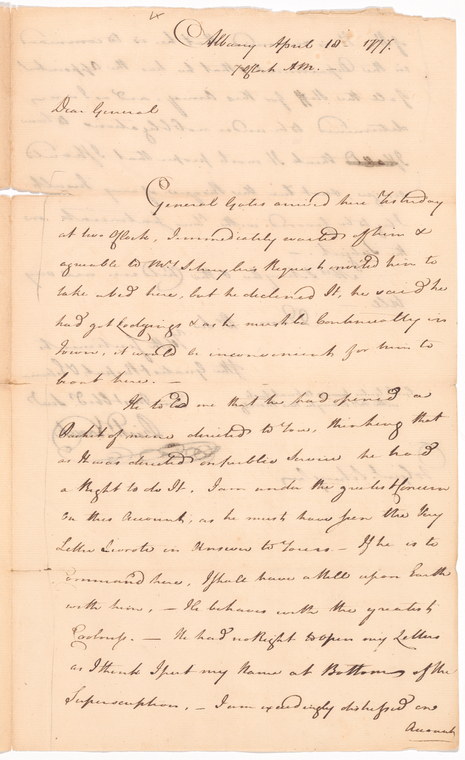 Albany April 18 1777.
7 oClock AM.
Dear General
General Gates arrived here Yesterday
at two oClock, Immediately waited of him &
agreable to Mrs Schuyler's Request invited him to
take a bed here, but he declined It, he said he
had got Lodgings & as he must be Continually in
Town, it would be inconvenient for him to
be out here. —
He told me that he had opened a
Packet of mine directed to You, thinking that
as It was directed on publick Service he had
a Right to do It. I am under the greatest Concern
on this Account, as he must have seen the Very
Letter I wrote in Answer to Yours — If he is to
Command here, I shall have a Hell upon Earth
with him. — He behaves with the greatest
Coolness. — He had no Right to open my Letters
as I think I put my Name at Bottom of the
Superscription. — I am exceedingly distressed on
Account